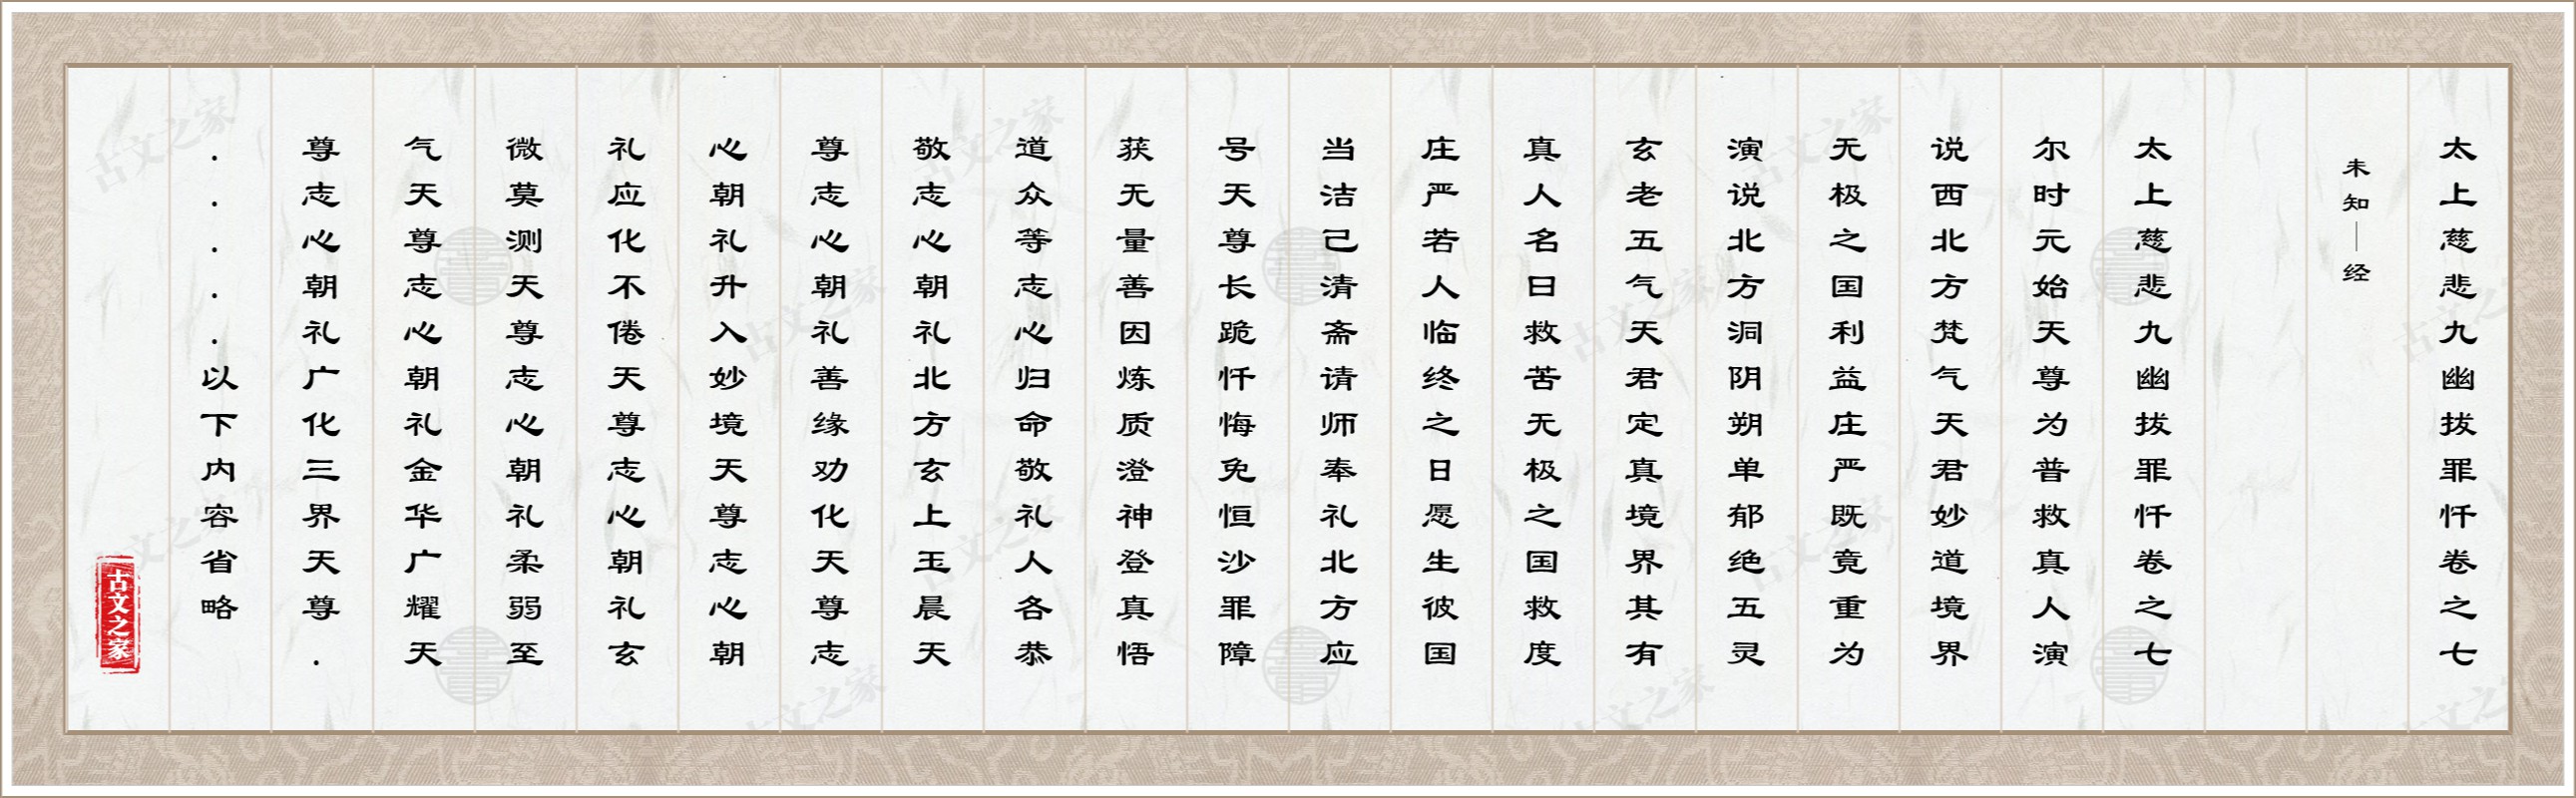 太上慈悲九幽拔罪忏卷之七
未知｜经
太上慈悲九幽拔罪忏卷之七
尔时元始天尊为普救真人演
说西北方梵气天君妙道境界
无极之国利益庄严既竟重为
演说北方洞阴朔单郁绝五灵
玄老五气天君定真境界其有
真人名曰救苦无极之国救度
庄严若人临终之日愿生彼国
当洁己清斋请师奉礼北方应
号天尊长跪忏悔免恒沙罪障
获无量善因炼质澄神登真悟
道众等志心归命敬礼人各恭
敬志心朝礼北方玄上玉晨天
尊志心朝礼善缘劝化天尊志
心朝礼升入妙境天尊志心朝
礼应化不倦天尊志心朝礼玄
微莫测天尊志心朝礼柔弱至
气天尊志心朝礼金华广耀天
尊志心朝礼广化三界天尊.
.....以下内容省略
古文之家